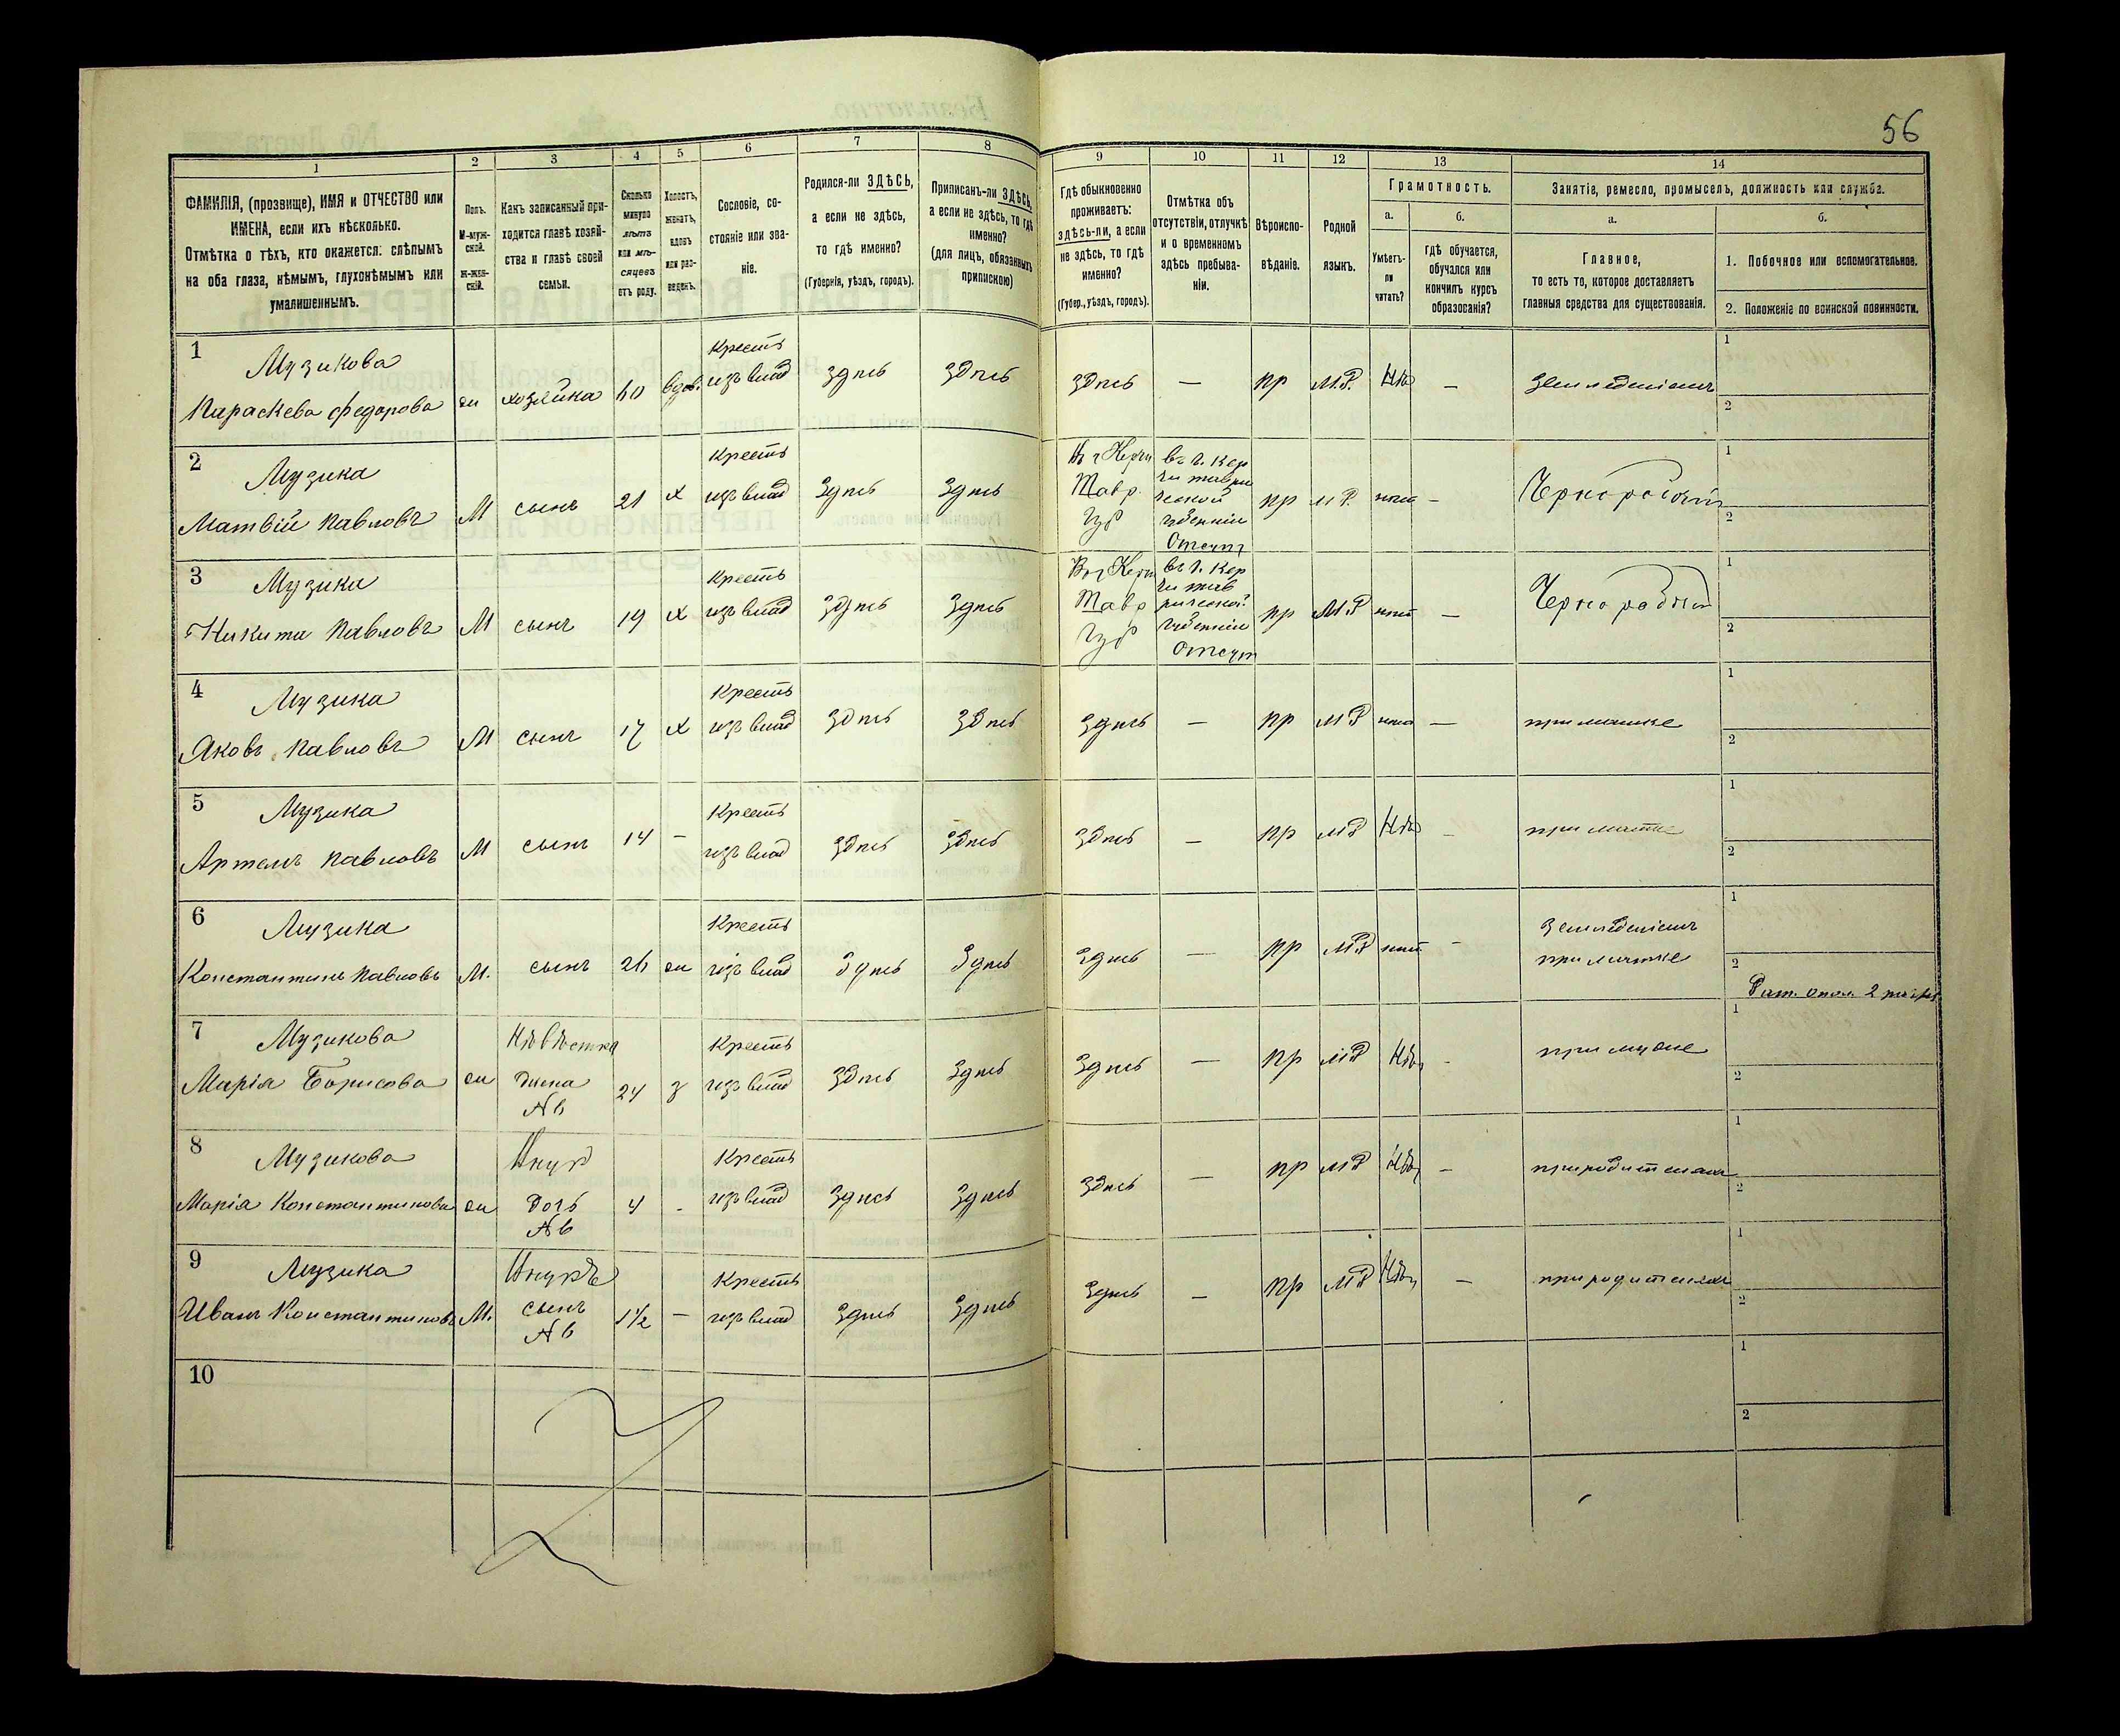 56
1
ФАМИЛІЯ, (прозвище), ИМЯ и ОТЧЕСТВО или
ИМЕНА, если ихъ нѣсколько.
Отмѣтка о тѣхъ, кто окажется: слѣпымъ
на оба глаза, нѣмымъ, глухонѣмымъ или
умалишеннымъ.
2
Полъ.
М-муж-
ской.
Ж-жен-
скій.
3
Какъ записанный при-
ходится главѣ хозяй-
ства и главѣ своей
семьи.
4
Сколько
минуло
лѣтъ
или мѣ-
сяцевъ
отъ роду.
5
Холостъ,
женатъ,
вдовъ
или раз-
веденъ.
6
Сословіе, со-
стояніе или зва-
ніе.
7
Родился-ли ЗДѢСЬ,
а если не здѣсь,
то гдѣ именно?
(Губернія, уѣздъ, городъ).
8
Приписанъ-ли ЗДѢСЬ,
а если не здѣсь, то гдѣ
именно?
(для лицъ, обязанныхъ
припискою)
9
Гдѣ обыкновенно
проживаетъ:
здѣсь-ли, а если
не здѣсь, то гдѣ
именно?
(Губер., уѣздъ, городъ).
10
Отмѣтка объ
отсутствіи, отлучкѣ
и о временномъ
здѣсь пребыва-
ніи.
11
Вѣроиспо-
вѣданіе.
12
Родной
языкъ.
13
Грамотность.
а.
Умѣетъ-
ли
читать?
б.
гдѣ обучается,
обучался или
кончилъ курсъ
образованія?
14
Занятіе, ремесло, промыселъ, должность или служба.
а.
Главное,
то есть то, которое доставляетъ
главныя средства для существованія.
б.
1. Побочное или вспомогательное.
2. Положеніе по воинской повинности.
1
Музикова
Параскева Федорова
хозяйка 60 вдов
Кресть
изъ влад
здѣсь здѣсь здѣсь — пр М.Р. нѣт — земледѣліемъ
1
2
2
Музика
Матвій Павловъ
М сынъ 21 х
Кресть
изъ влад
здѣсь здѣсь
Въ г Керчи
Тавр
Губ
въ г. Кер
чи таври
ческой
губерніи
Отсут
пр М Р. нѣт — Чернорабочій
1
2
3
Музика
Никита Павловъ
М сынъ 19 х
Кресть
изъ влад
здѣсь здѣсь
Въ г Керч
Тавр
Губ
въ г. Кер
чи тав
рической
губерніи
Отсут
пр М.Р нѣт —
1
2
4
Музика
Яковъ Павловъ
М сынъ 17 х
Кресть
изъ влад
здѣсь здѣсь здѣсь — пр М Р нѣт — при матке
1
2
5
Музика
Артемъ Павловъ
М сынъ 14 —
Кресть
изъ влад
здѣсь здѣсь здѣсь — пр М Р нѣт — при матке
1
2
6
Музика
Константинъ Павловъ
М. сынъ 26 ж
Кресть
изъ влад
здѣсь здѣсь здѣсь — пр М Р нѣт —
земледѣліемъ
при матке
1
2
Рат. опол. 2
7
Музикова
Марія Борисова
Невѣстка
жена
№6
24 з
Кресть
изъ влад
здѣсь здѣсь здѣсь — пр М Р нѣт - при муже
1
2
8
Музикова
Марія Константинова
Внук
дочь
№6
4 -
Кресть
изъ влад
здѣсь здѣсь здѣсь — пр М Р нѣт — при родителях
1
2
9
Музика
Иванъ Константиновъ
М.
Внукъ
сынъ
№6
1½ —
Кресть
изъ влад
здѣсь здѣсь здѣсь — пр М Р нѣт — при родителях
1
2
10
1
2